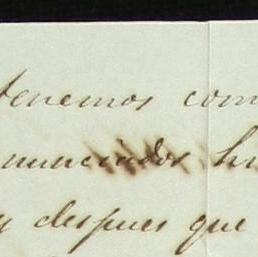 tenemos com
nunciados h
y despues que